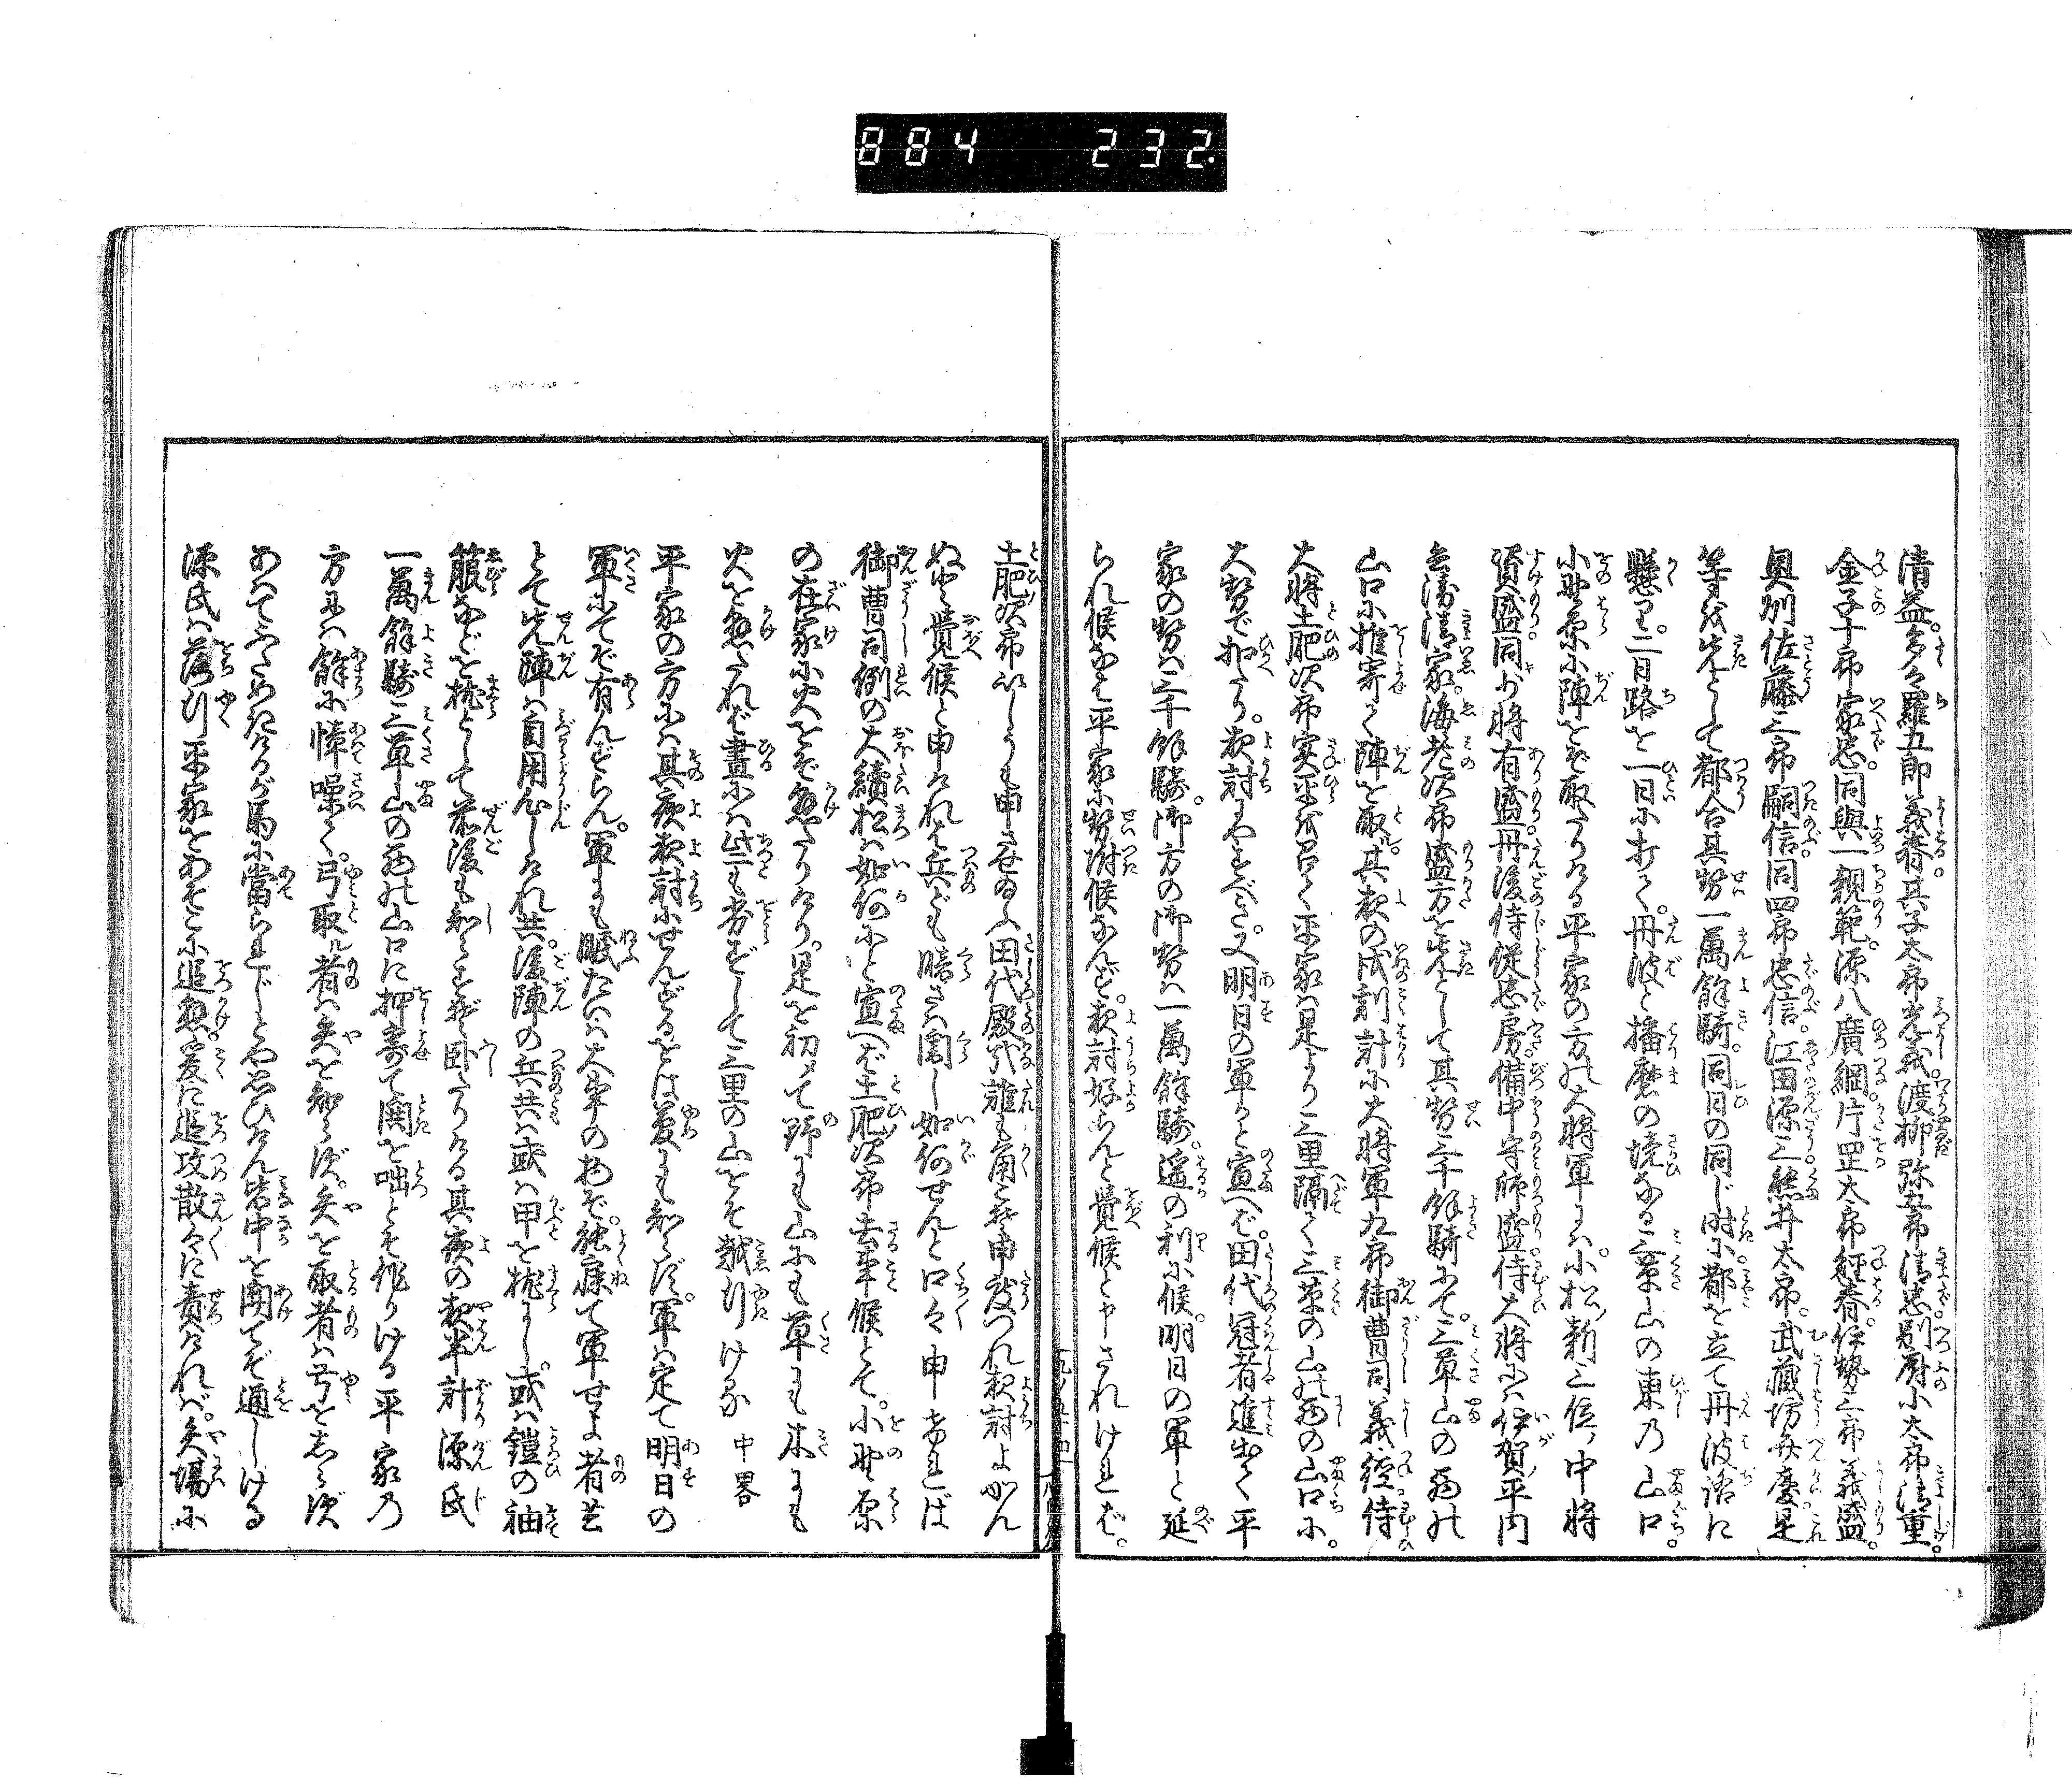 884 232.
清益。多々羅五郎義春。其子太郎光義。渡柳弥五郎清忠。別府小太郎清重。
金子十郎家忠。同與一親範。源八廣綱。片岡太郎経春。伊勢三郎義盛。
奥州佐藤三郎嗣信。同四郎忠信。江田源三。熊井太郎。武蔵坊弁慶。是
等を先として都合其勢一萬餘騎。同日の同じ時に都を立て丹波路に
懸り。二日路を一日に打て。丹波と播磨の境なる三草山の東乃山口。
小野原に陣をぞ取りける平家の方の大将軍には。小松ノ新三位ノ中将
資盛。同少将有盛。丹後侍従忠房。備中守師盛。侍大将には伊賀ノ平内
兵衛清家。海老次郎盛方を先として其勢三千餘騎にて。三草山の西の
山口に推寄て陣を取。其夜の戌ノ刻計に大将軍九郎御曹司義経侍
大将土肥次郎実平を召て平家は是より三里隔て三草の山の西の山口に。
大勢で扣たり。夜討にやすべき。又明日の軍かと宣へば。田代冠者進出て平
家の勢は三千餘騎。御方の御勢は一萬餘騎。遥の利に候。明日の軍と延
られ候なば平家に勢附候なんず。夜討好らんと覚候と申されければ。
土肥ノ次郎いしうも申させ給ふ田代殿哉誰も角こそ申度つれ夜討よかん
ぬと覚候と申ければ兵ども暗さは闇し如何せんと口々申ければ
御曹司例の大續松は如何にと宣へば土肥ノ次郎去事候とて。小野原
の在家に火をぞ懸たりけり。是を初メて野にも山にも草にも木にも
火を懸たれば晝には些も劣ずして三里の山をぞ越行ける 中畧
平家の方には其夜夜討にせんずるをば夢にも知らず。軍は定て明日の
軍にてぞ有んずらん。軍にも眠たいは大事の物ぞ。能寐て軍せよ者共
とて先陣は自用心しけれ共。後陣の兵共は或は甲を枕にし。或は鎧の袖
箙などを枕として前後も知らずぞ臥たりける其夜の夜半計源氏
一萬餘騎三草山の西の山口に押寄て鬨を咄とぞ作りける平家乃
方には餘に慌噪て。弓取ル者は矢を知らず。矢を取者は弓をしらず
あはてふためきけるが馬に當られじとや思ひけん皆中を開てぞ通しける
源氏は落行平家をあそこに追懸。爰に追攻散々に責ければ。矢場に